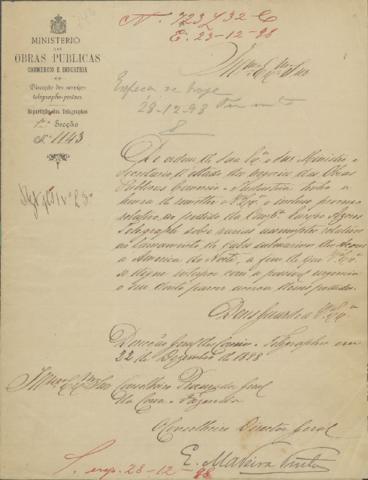 N. 723 L 32-C
E. 23-12-98
MINISTERIO
DAS
OBRAS PUBLICAS
COMMERCIO E INDUSTRIA
Direcção dos serviços
telegrapho-postaes
Repartição dos Telegraphos
1.ª Secção
N.º 1143
Ill.mo Ex.mo Snr
hoje
28-12-98
De ordem de Sua Ex.ª o Snr. Ministro e
Secretario d'Estado dos Negocios das Obras
Publicas Commercio e Industria, tenho a
honra de remetter a V. Ex.ª o incluso processo
relativo ao pedido da
Telegraph sobre varios assumptos relativos
ao lançamento de cabos submarinos dos Açores
a America do Norte, a fim de que V. Ex.ª
se digne interpor com a possivel urgencia
o seu parecer
Deus Guarde a V. Ex.ª
Direcção Geral dos Correios e Telegraphos em
22 de Dezembro de 1898
Ill.mo e Ex.mo Snr Conselheiro Procurador Geral
da Coroa e Fazenda
O Conselheiro Director Geral
E. Madeira Pinto
28-12
98